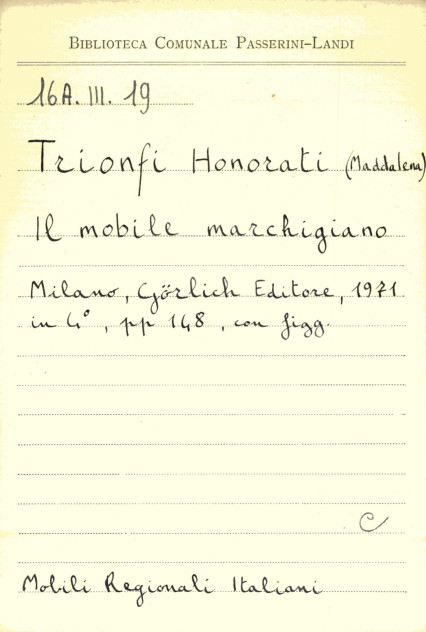 BIBLIOTECA COMUNALE PASSERINI-LANDI
16A. III. 19
Trionfi Honorati (Maddalena)
Il mobile marchigiano
Milano, Görlich Editore, 1971
in 4°, pp 148, con figg.
C
Mobili Regionali Italiani